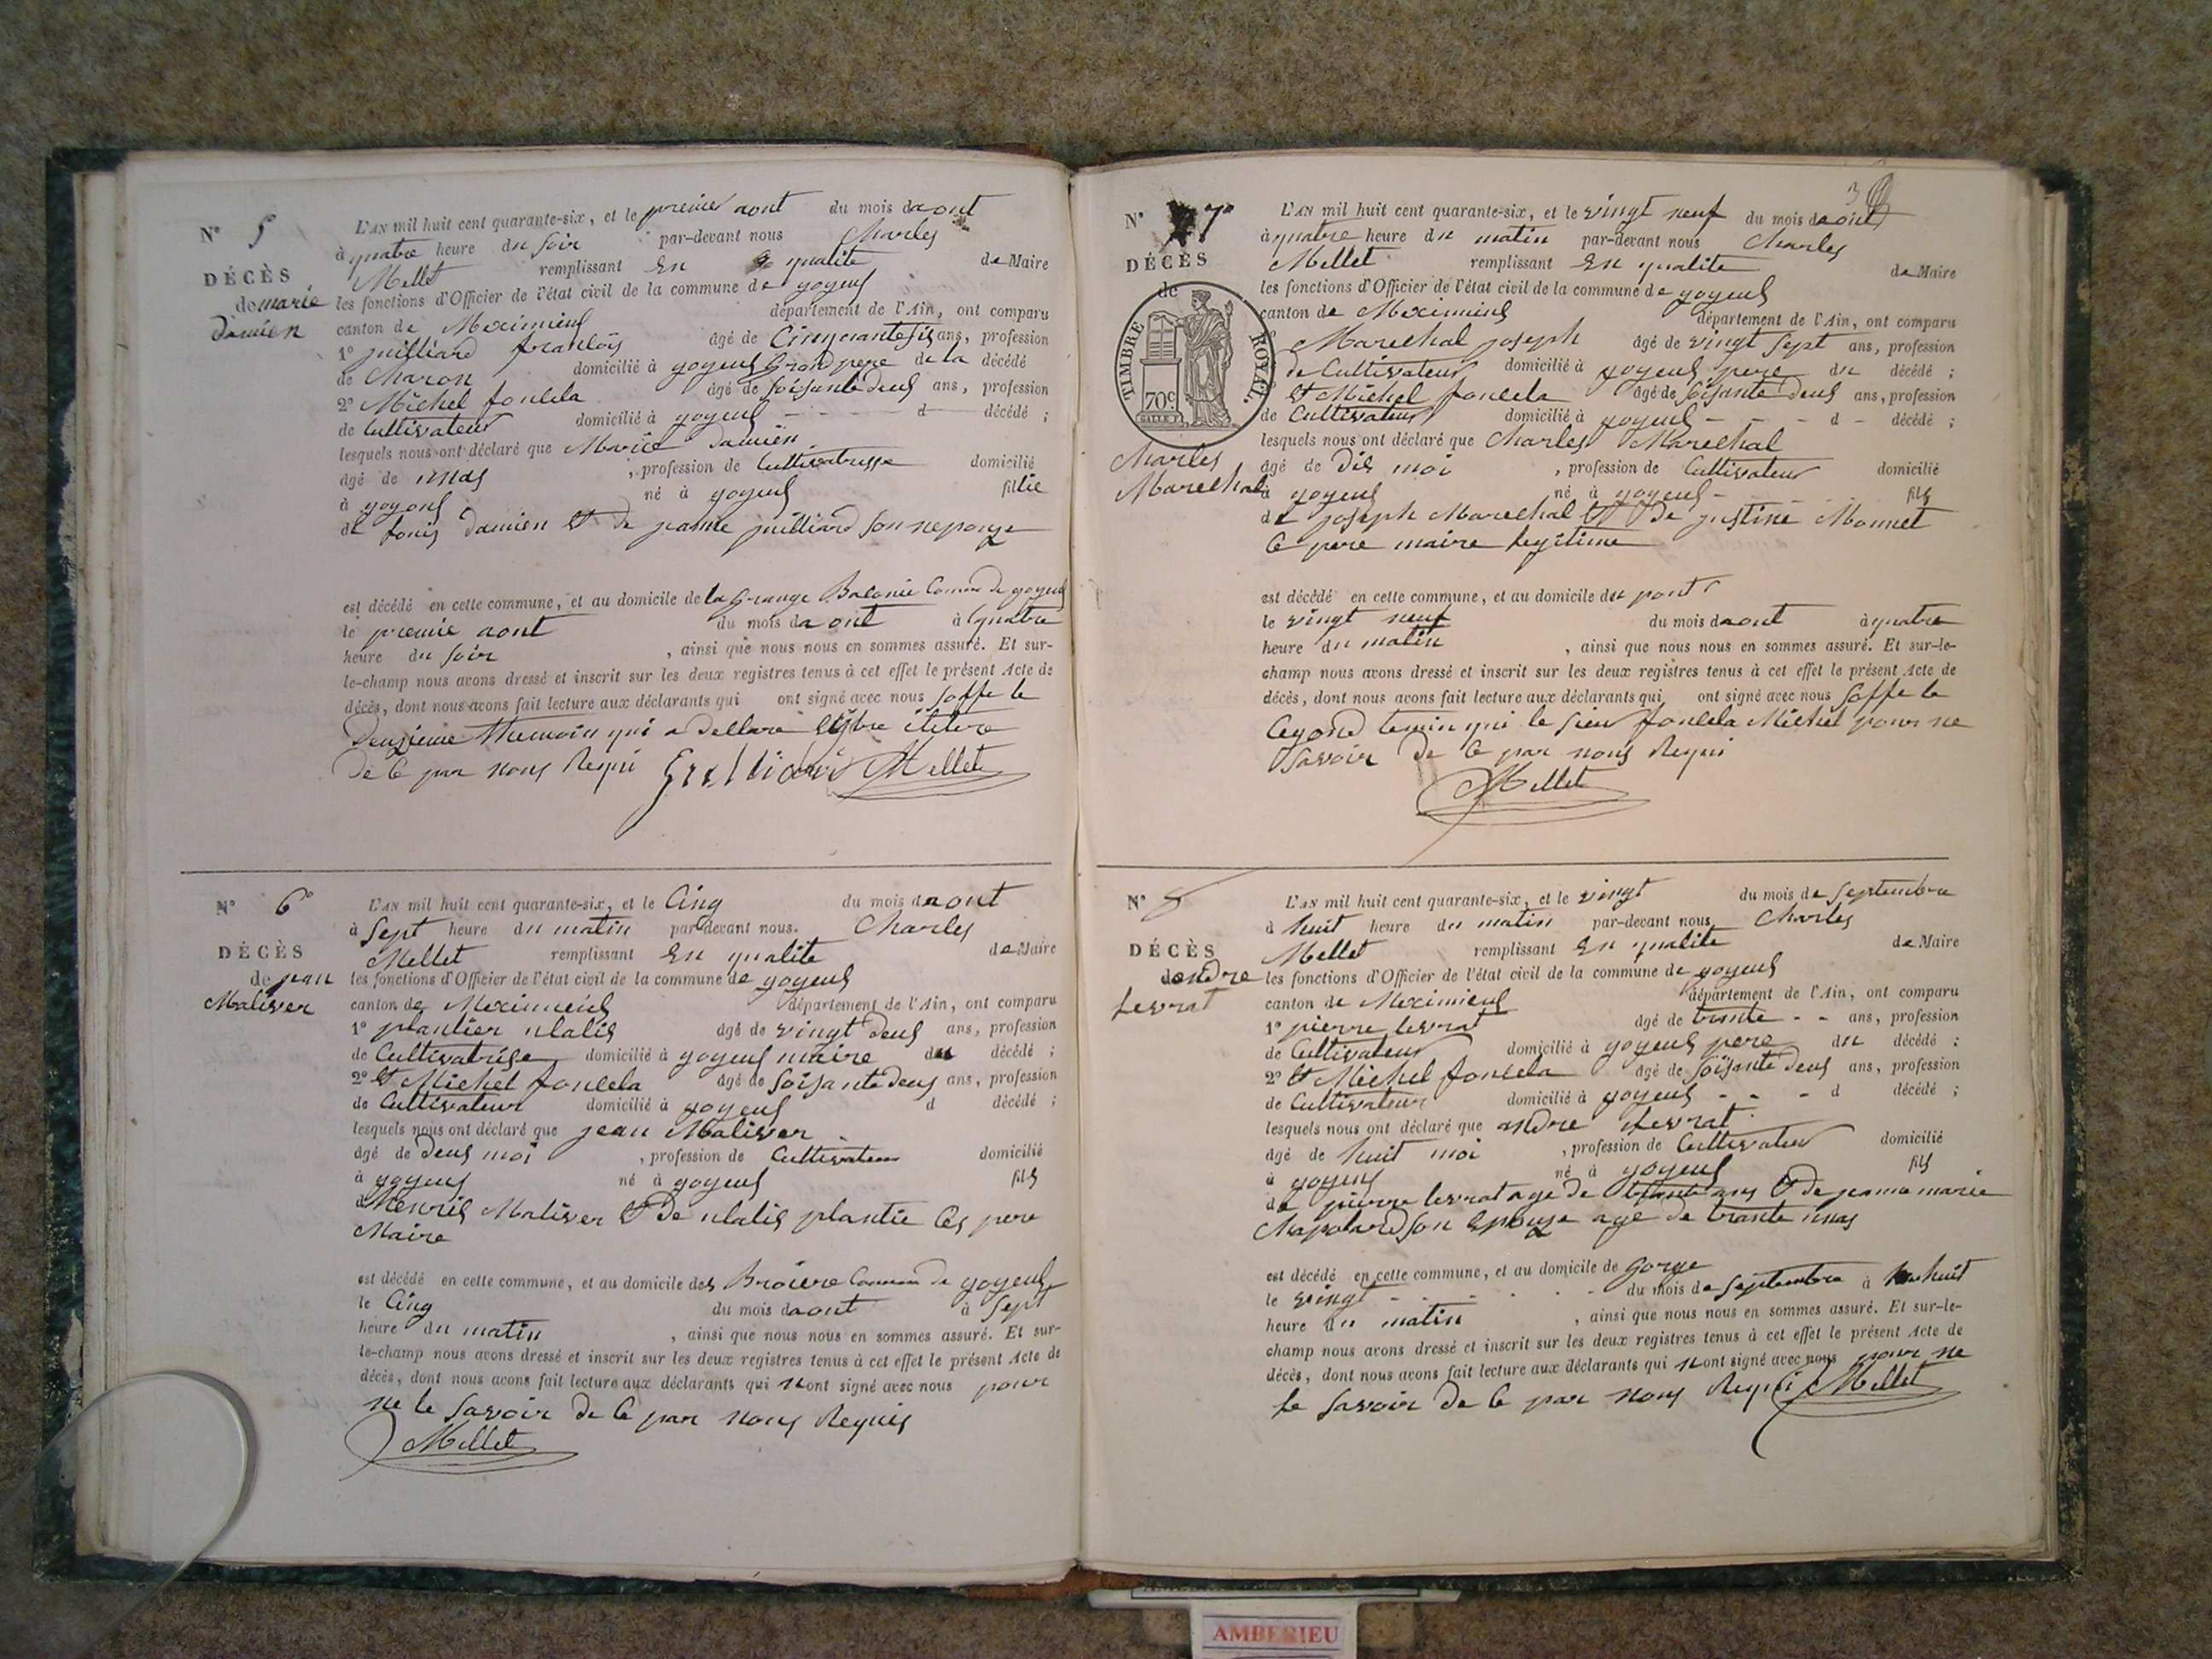 N° 5
DÉCÈS
de marie
damien
L'AN mil huit cent quarante-six, et le premier aout du mois daout
à quatre heure du soir par-devant nous Charles
Mellet remplissant En qualite de Maire
les fonctions d'Officier de l'état civil de la commune de joyeux
canton de Meximieux département de l'Ain, ont comparu
1° juilliard francois âgé de Cinquante six ans, profession
de Charon domicilié à joyeux Grand pere de la décédé
2° Michel foncela âgé de soisante deux ans, profession
de Cultivateur domicilié à joyeux - - - d décédé ;
lesquels nous ont déclaré que Marie damien
âgé de , profession de Cultivatrisse domicilié
à joyeux né à joyeux fillie
de Damien Et de jeanne juilliard son
est décédé en cette commune, et au domicile de la Grange Balonie Comune de joyeux
le premie aout du mois daout à quatre
heure du soir , ainsi que nous nous en sommes assuré. Et sur-
le-champ nous avons dressé et inscrit sur les deux registres tenus à cet effet le présent Acte de
décès, dont nous avons fait lecture aux déclarants qui ont signé avec nous soffe le
deuzieme qui a
de Ce par nous Requi Mellet
N° 6°
DÉCÈS
de jean
Maliver
L'AN mil huit cent quarante-six, et le Cinq du mois daout
à sept heure du matin par-devant nous. Charles
Mellet remplissant En qualite de Maire
les fonctions d'Officier de l'état civil de la commune de joyeux
canton de Meximieux département de l'Ain, ont comparu
1° plantier ulalis âgé de vingt deux ans, profession
de Cultivatrise domicilié à joyeux maire du décédé ;
2° Et Michel foncela âgé de soisante deux ans, profession
de Cultivateur domicilié à joyeux d décédé ;
lesquels nous ont déclaré que jean Maliver
âgé de deux moi , profession de Cultivateur domicilié
à joyeux né à joyeux fils
dhenris Maliver Et De ulalis plantie Ces pere
Maire
est décédé en cette commune, et au domicile des Broiere Commune de joyeux
le Cinq du mois daout à sept
heure du matin , ainsi que nous nous en sommes assuré. Et sur-
le-champ nous avons dressé et inscrit sur les deux registres tenus à cet effet le présent Acte de
décès, dont nous avons fait lecture aux déclarants qui nont signé avec nous pour
ne le savoir de Ce par nous Requis
Mellet
3
N° 7°
DÉCÈS
de
TIMBRE ROYAL.
70c.
Charles
Marechal
L'AN mil huit cent quarante-six, et le vingt neuf du mois daout
à quatre heure du matin par-devant nous Charles
Mellet remplissant En qualite de Maire
les fonctions d'Officier de l'état civil de la commune de joyeux
canton de Meximieux département de l'Ain, ont comparu
Marechal joseph âgé de vingt sept ans, profession
de Cultivateur domicilié à joyeux pere du décédé ;
Et Michel foncela âgé de soisante deux ans, profession
de Cultivateur domicilié à joyeux - - - d - décédé ;
lesquels nous ont déclaré que Charles Marechal
âgé de dis moi , profession de Cultivateur domicilié
à joyeux né à joyeux - fils
de joseph Marechal Et De justine Monnet
Ce pere maire legitime
est décédé en cette commune, et au domicile du pont
le vingt neuf du mois daout à quatre
heure du matin , ainsi que nous nous en sommes assuré. Et sur-le-
champ nous avons dressé et inscrit sur les deux registres tenus à cet effet le présent Acte de
décès, dont nous avons fait lecture aux déclarants qui ont signé avec nous soffe le
Cegond temin qui le sieur foncela Michel pour ne
savoir de Ce par nous Requi
Mellet
N° 8
DÉCÈS
dandre
levrat
L'AN mil huit cent quarante-six, et le vingt du mois de septembre
à huit heure du matin par-devant nous Charles
Mellet remplissant En qualite de Maire
les fonctions d'Officier de l'état civil de la commune de joyeux
canton de Meximieux département de l'Ain, ont comparu
1° pierre levrat âgé de trante - - ans, profession
de Cultivateur domicilié à joyeux pere du décédé ;
2° Et Michel foncela âgé de soisante deux ans, profession
de Cultivateur domicilié à joyeux - - - d décédé ;
lesquels nous ont déclaré que andre levrat
âgé de huit moi , profession de Cultivateur domicilié
à joyeux né à joyeux fils
de pierre levrat age de trante ans Et de jeanne marie
Chapolard son Epouze age de trante
est décédé en cette commune, et au domicile de Gorge
le vingt - - - - du mois de septembre à huit
heure du matin , ainsi que nous nous en sommes assuré. Et sur-le-
champ nous avons dressé et inscrit sur les deux registres tenus à cet effet le présent Acte de
décès, dont nous avons fait lecture aux déclarants qui nont signé avec nous pour ne
le savoir de Ce par nous Requi Mellet
AMBERIEU